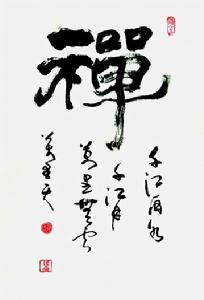 禪
千江有水
千江月
萬里無雲
萬里天